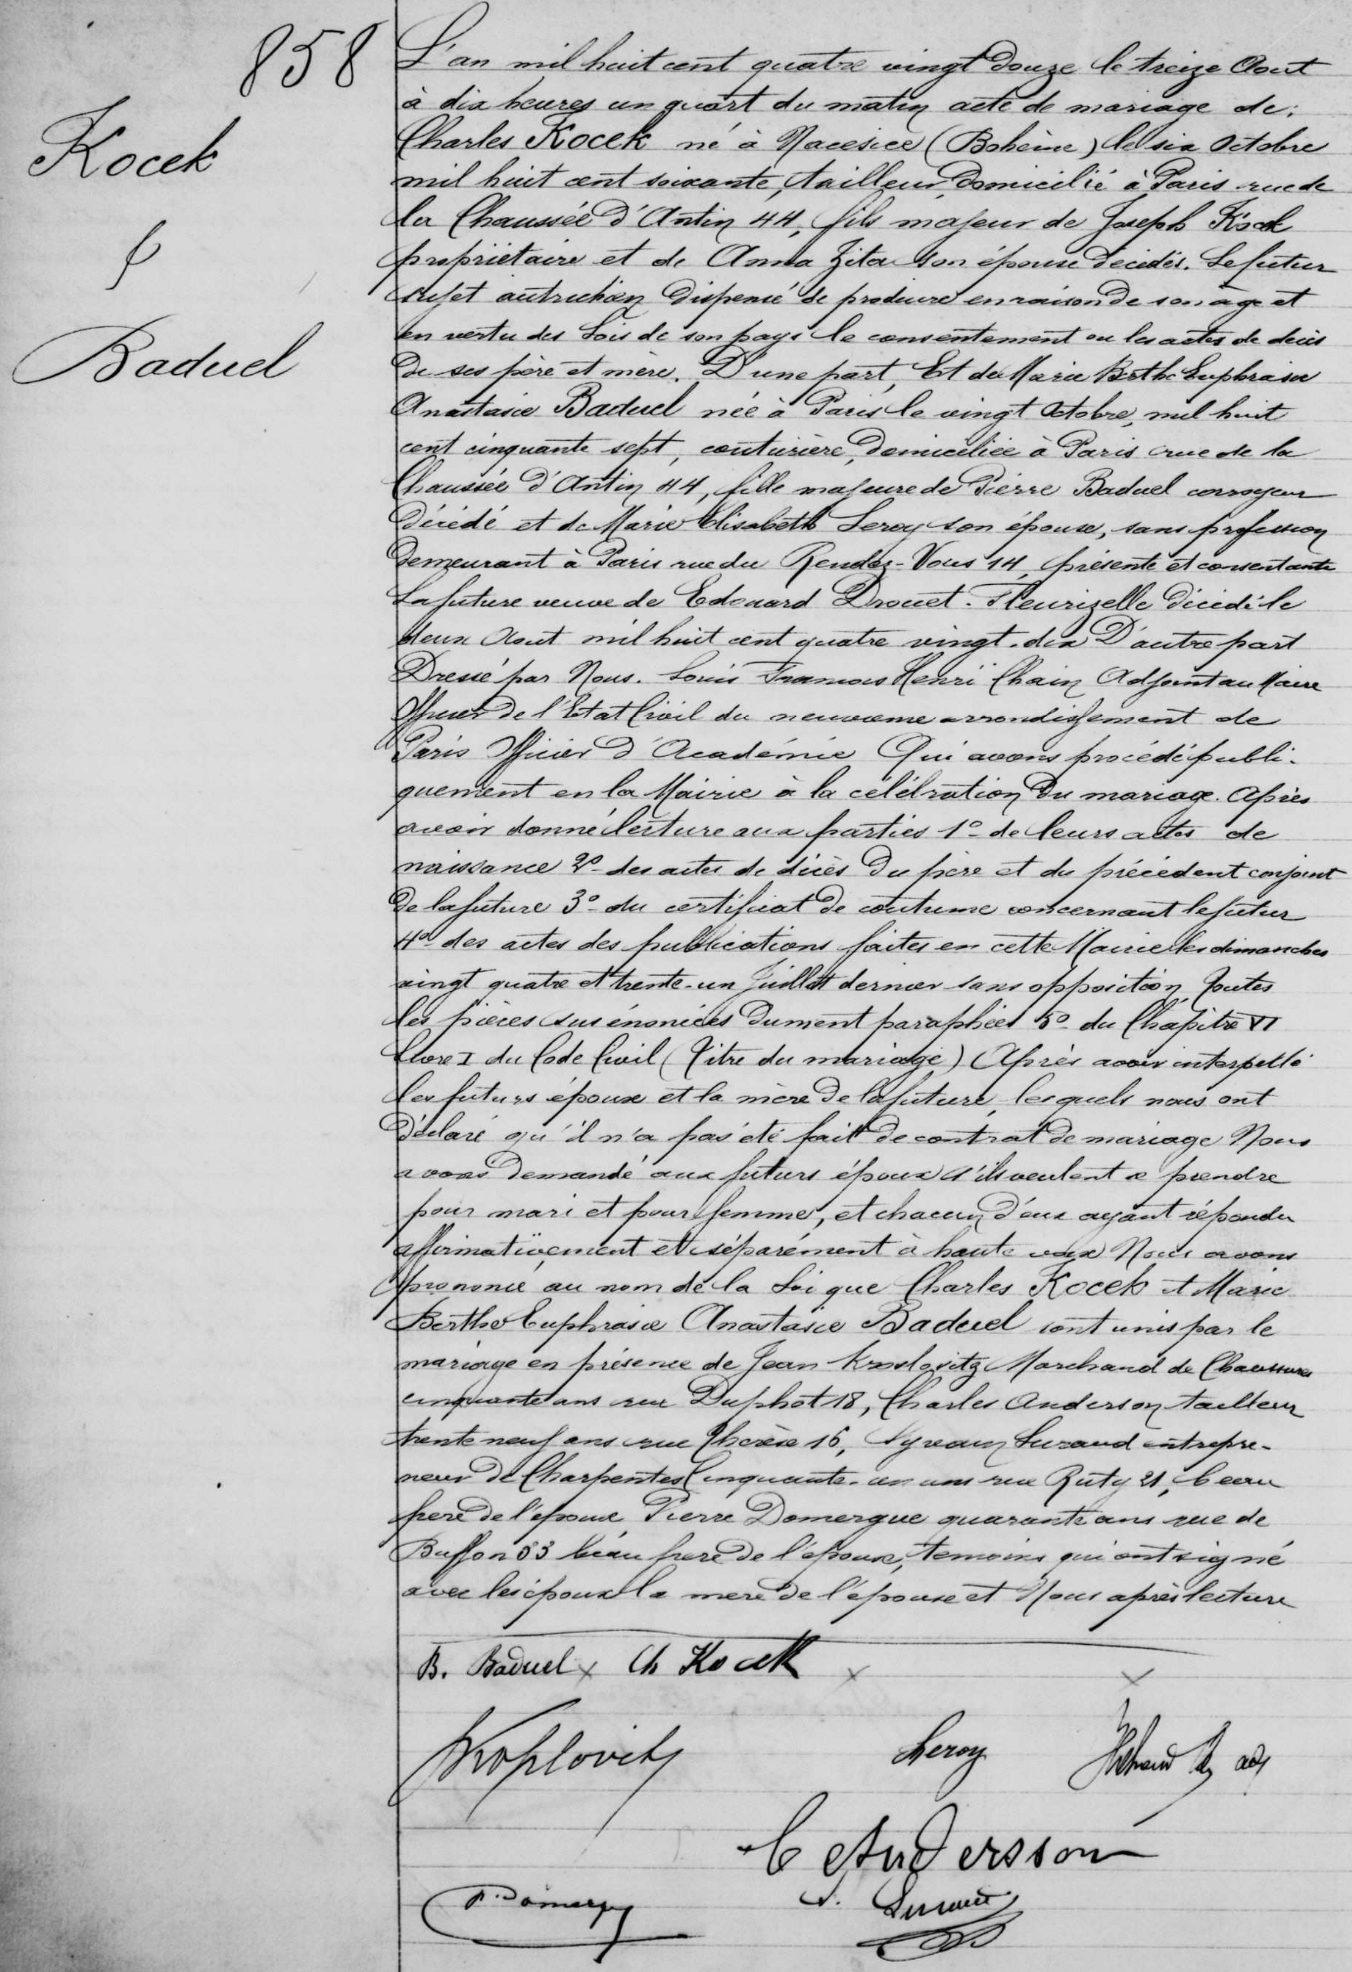 858
Kocek
&
Baduel
L'an mil huit cent quatre vingt douze le treize Aout
à dix heures un quart du matin acte de mariage de:
Charles Kocek né à Nacesice (Bohème) le six Octobre
mil huit cent soixante, tailleur, domicilié à Paris rue de
la Chaussée d'Antin 44, fils majeur de Joseph Kocek
propriétaire et de Anna Zita son épouse décédés. Le futur
sujet autrichien dispensé de produire en raison de son âge et
en vertu des Lois de son pays le consentement ou les actes de décès
de ses père et mère. D'une part, Et de Marie Berthe Euphrasie
Anastasie Baduel née à Paris le vingt Octobre, mil huit
cent cinquante sept, couturière, domiciliée à Paris rue de la
Chaussée d'Antin 44, fille majeure de Pierre Baduel corroyeur
décédé et de Marie Elisabeth Leroy son épouse, sans profession
demeurant à Paris rue du Rendez-Vous 14, présente et consentante
La future veuve de Edouard Drouet-Fleurizelle décédé le
deux Aout mil huit cent quatre vingt-dix D'autre part
Dressé par Nous. Louis Francois Henri Chain Adjoint au Maire
Officier de l'Etat Civil du neuvieme arrondissement de
Paris Officier d'Académie Qui avons procédé publi-
quement en la Mairie à la célébration du mariage. Après
avoir donné lecture aux parties 1° de leurs actes de
naissance 2° des actes de décès du père et du précédent conjoint
de la future 3° du certificat de coutume concernant le futur
4° des actes des publications faites en cette Mairie les dimanches
vingt quatre et trente-un Juillet dernier sans opposition, Toutes
les pièces sus énoncées dument paraphées 5° du Chapitre VI
livre I du Code Civil (Titre du mariage) Après avoir interpellé
les futurs époux et la mère de la future, lesquels nous ont
déclaré qu'il n'a pas été fait de contrat de mariage Nous
avons demandé aux futurs époux s'ils veulent se prendre
pour mari et pour femme, et chacun d'eux ayant répondu
affirmativement et séparément à haute voix Nous avons
prononcé au nom de la Loi que Charles Kocek et Marie
Berthe Euphrasie Anastasie Baduel sont unis par le
mariage en présence de Jean Marchand de Chaussures
cinquante ans rue Duphot 18, Charles Anderson tailleur
trente neuf ans rue Thérèse 16, entrepre-
neur de Charpentes Cinquante-un ans rue Ruty 21, beau
frere de l'épouse, Pierre Domergue quarante ans rue de
Buffon 33 beau frere de l'épouse, temoins qui ont signé
avec les époux la mere de l'épouse et Nous après lecture
B. Baduel x Ch Kocek x x
Koplovitz Leroy
C Andersson
P. Domergue